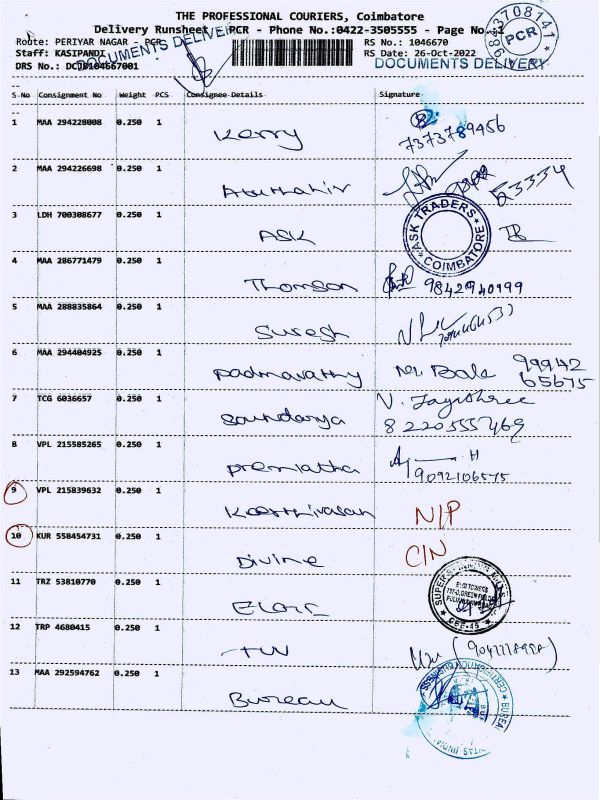 THE PROFESSIONAL COURIERS, Coimbatore
Delivery Runsheet / PCR - Phone No.:0422-3505555 - Page No.:1
Route: PERIYAR NAGAR - PCR
RS No.: 1046670
Staff: KASIPANDI
RS Date: 26-Oct-2022
DRS No.: DCJB104667001
DOCUMENTS DELIVERY
DOCUMENTS DELIVERY
PCR
S No Consignment No Weight PCS Consignee Details Signature
1 MAA 294228008 0.250 1 Kerry 7373789456
2 MAA 294226698 0.250 1
3 LDH 700308677 0.250 1 ASK
ASK TRADERS
COIMBATORE
4 MAA 286771479 0.250 1 Thomson 9842940999
5 MAA 288835864 0.250 1 Suresh
6 MAA 294404925 0.250 1 Padmavathy Bala 99942
65675
7 TCG 6036657 0.250 1 Soundarya V. Jayashree
8220555469
8 VPL 215585265 0.250 1 Premlatha 9092106575
9 VPL 215839632 0.250 1 Keerthivasan N/P
10 KUR 558454731 0.250 1 Divine C/N
11 TRZ 53810770 0.250 1
12 TRP 4680415 0.250 1
13 MAA 292594762 0.250 1 Bureau